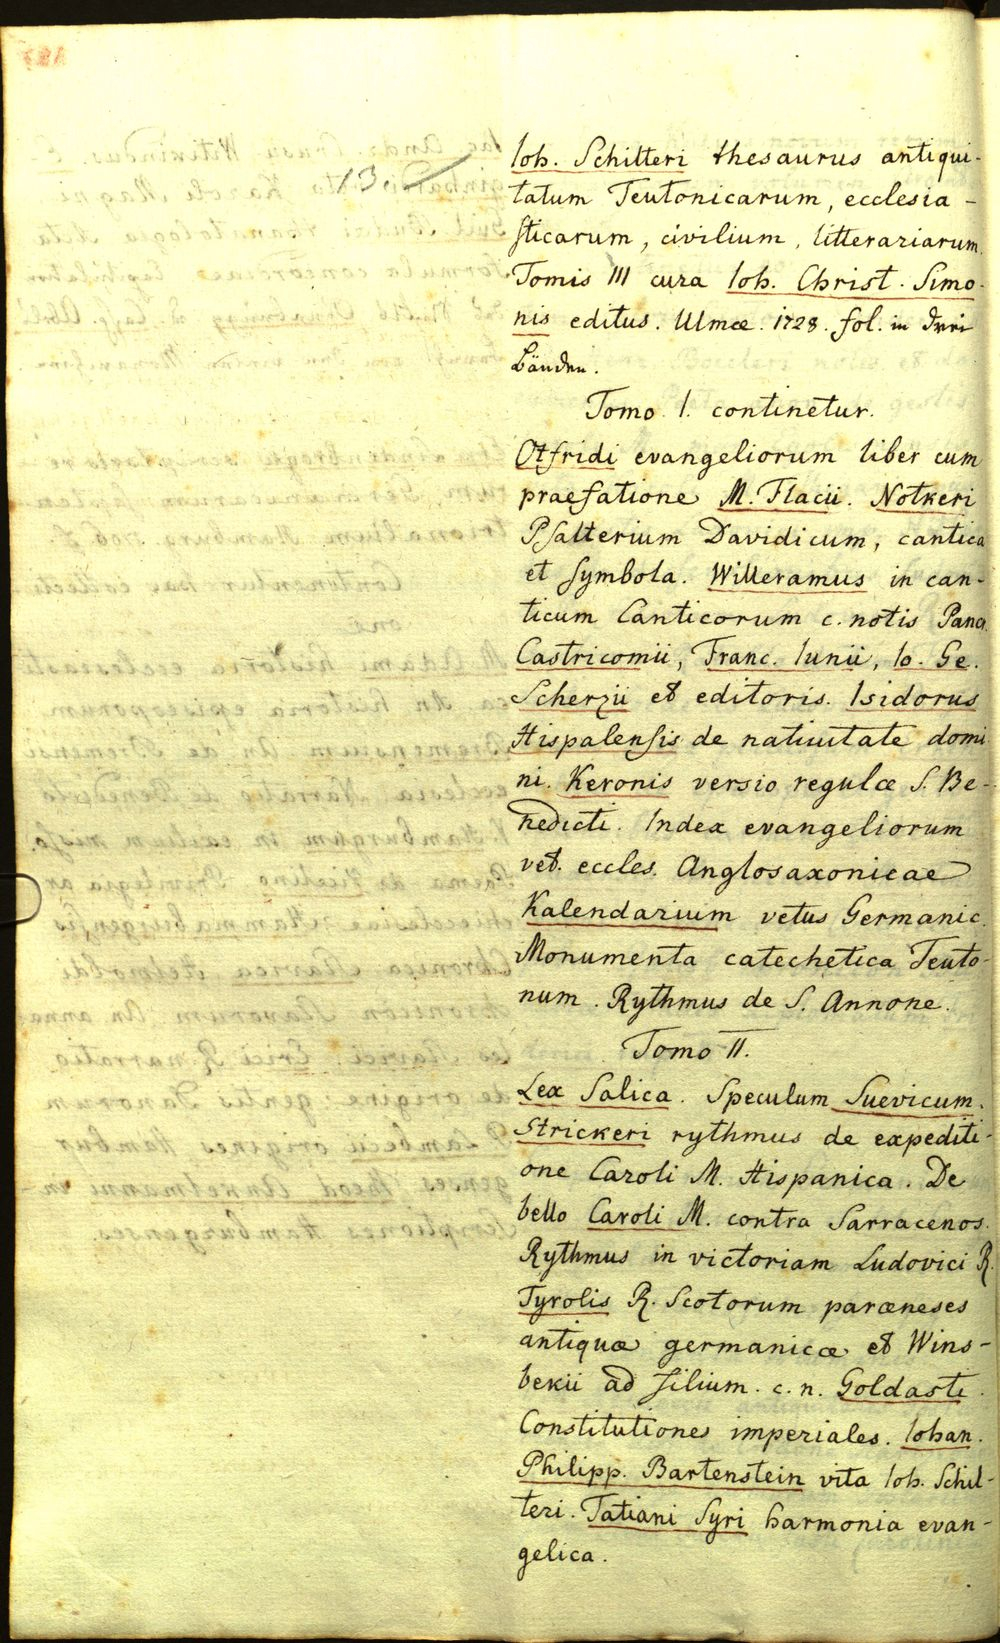 13
Ioh. Schilteri thesaurus antiqui-
tatum Teutonicarum, ecclesia-
sticarum, civilium, litterariarum.
Tomis III cura Ioh. Christ. Simo-
nis editus. Ulmæ. 1728. fol. in drei
Bänden.
Tomo I. continetur.
Otfridi evangeliorum liber cum
praefatione M. Flacii. Notkeri
Psalterium Davidicum, cantica
et symbola. Willeramus in can-
ticum Canticorum c. notis Pancr.
Castricomii, Franc. Iunii, Io. Ge.
Scherzii et editoris. Isidorus
Hispalensis de nativitate domi
ni. Keronis versio regulæ S. Be-
nedicti. Index evangeliorum
vet. eccles. Anglosaxonicae
Kalendarium vetus Germanic.
Monumenta catechetica Teuto-
num. Rythmus de S. Annone.
Tomo II.
Lex Salica. Speculum Suevicum.
Strickeri rythmus de expediti-
one Caroli M. Hispanica. De
bello Caroli M. contra Sarracenos.
Rythmus in victoriam Ludovici R.
Tyrolis R. Scotorum paræneses
antiquæ germanicæ et Wins-
bekii ad filium. c. n. Goldasti.
Constitutiones imperiales. Iohan.
Philipp. Bartenstein vita Ioh. Schil-
teri. Tatiani Syri harmonia evan-
gelica.